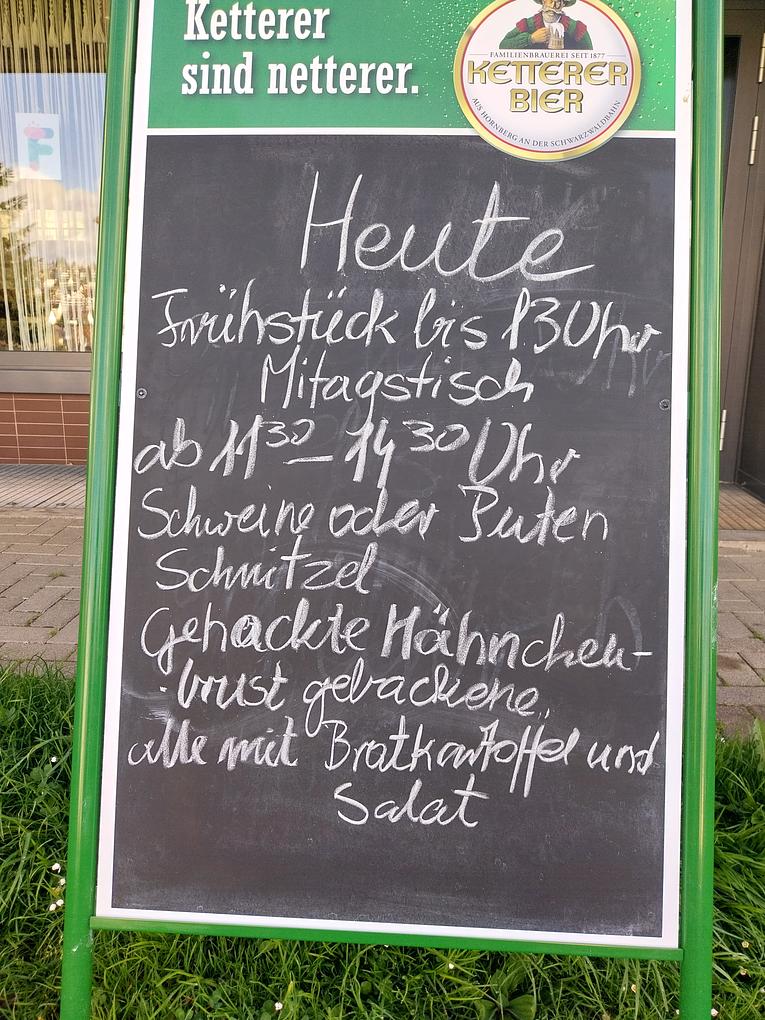 Ketterer
sind netterer.
FAMILIENBRAUEREI SEIT 1877
KETTERER
BIER
AUS HORNBERG AN DER SCHWARZWALDBAHN
Heute
Frühstück bis 13 Uhr
Mitagstisch
ab 11 30 – 14 30 Uhr
Schweine oder Puten
Schnitzel
Gehackte Hähnchen-
brust gebackene,
alle mit Bratkartoffel und
Salat
F